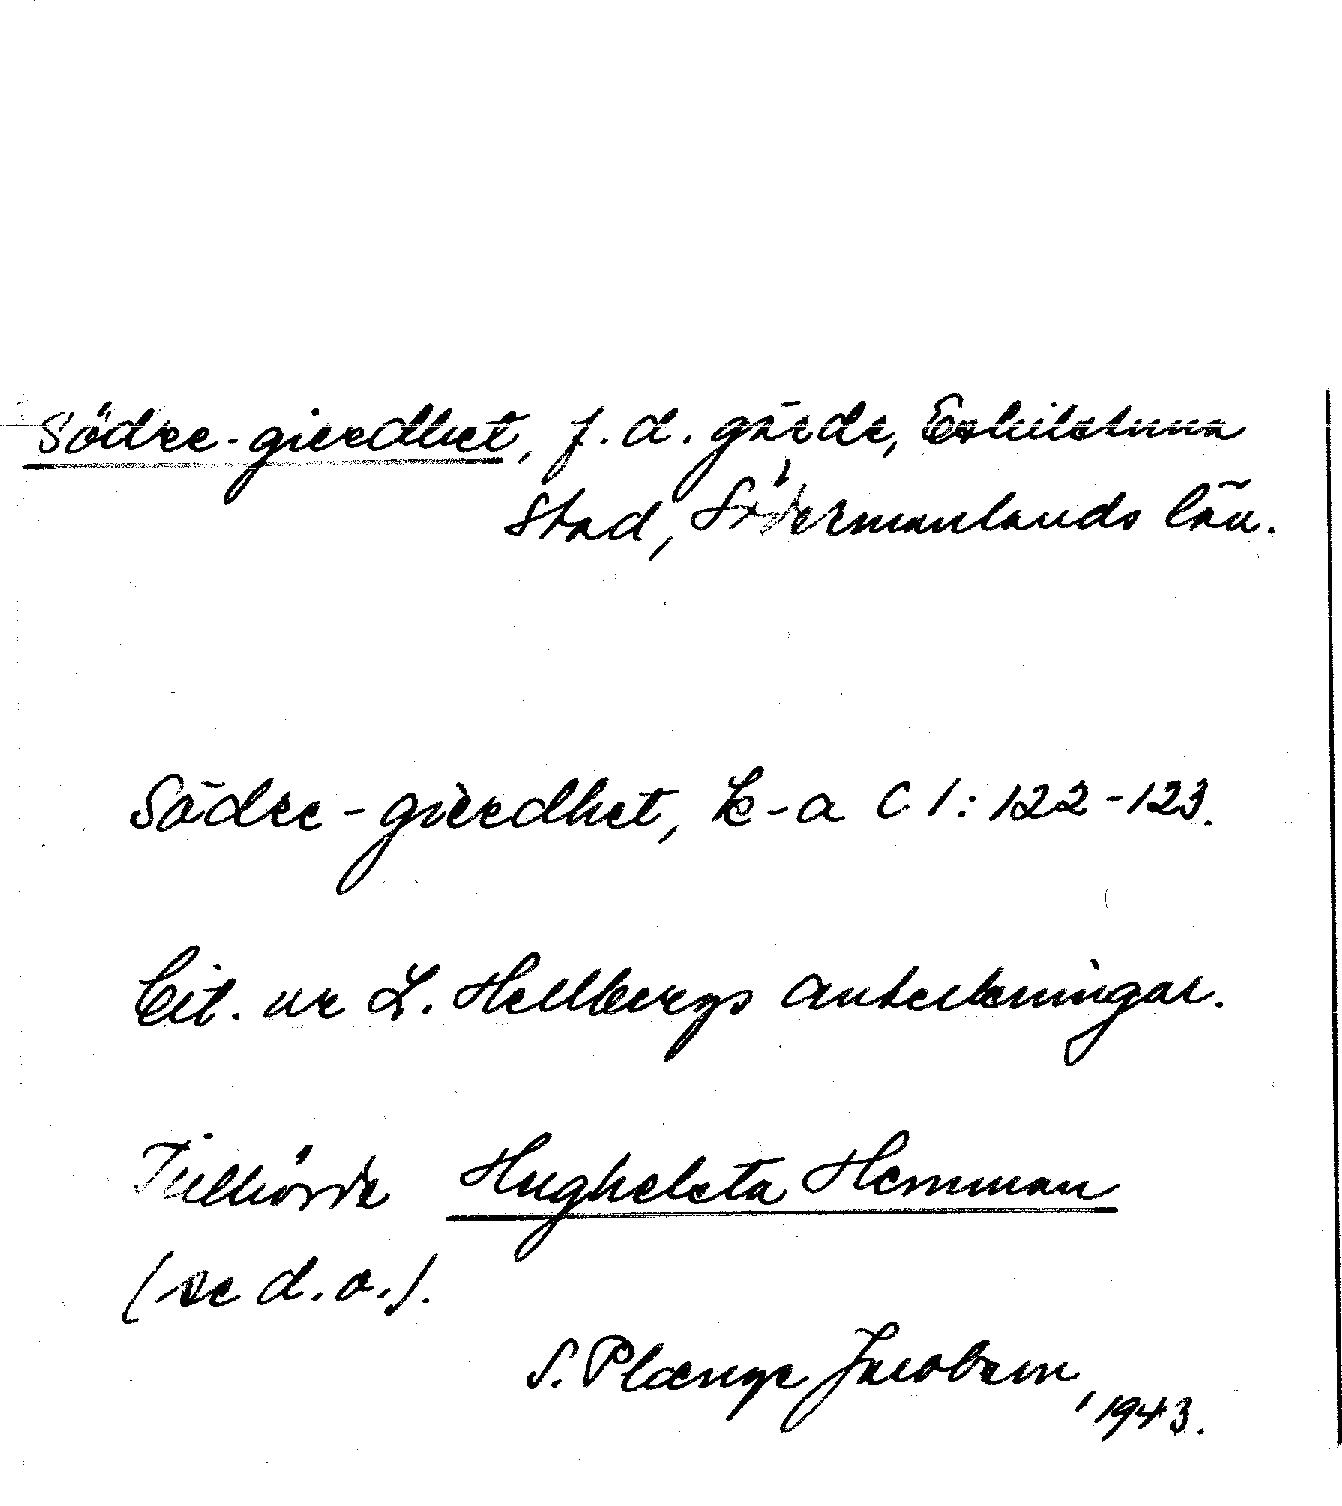 Södre-gierdhet, f.d. gärde, Eskilstuna
Stad, Södermanlands län.
Södre-gierdhet, k-a C 1: 122-123.
Cit. ur L. Hellbergs anteckningar.
Tillhörde Hughelsta Hemman
(se d.o.).
S. Plænge Jacobson, 1943.